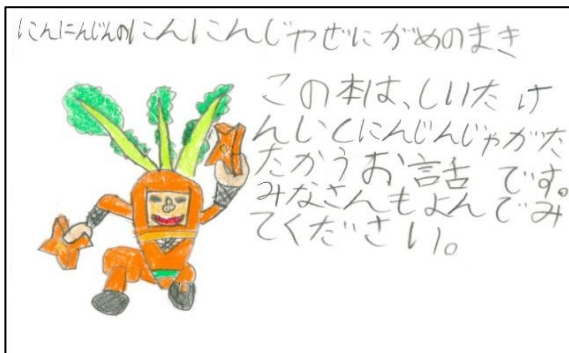 にんにんじんのにんにんじゃぜにがめのまき
この本は、しいたけ
んしとにんじんじゃがた
たかうお話です。
みなさんもよんでみ
てください。